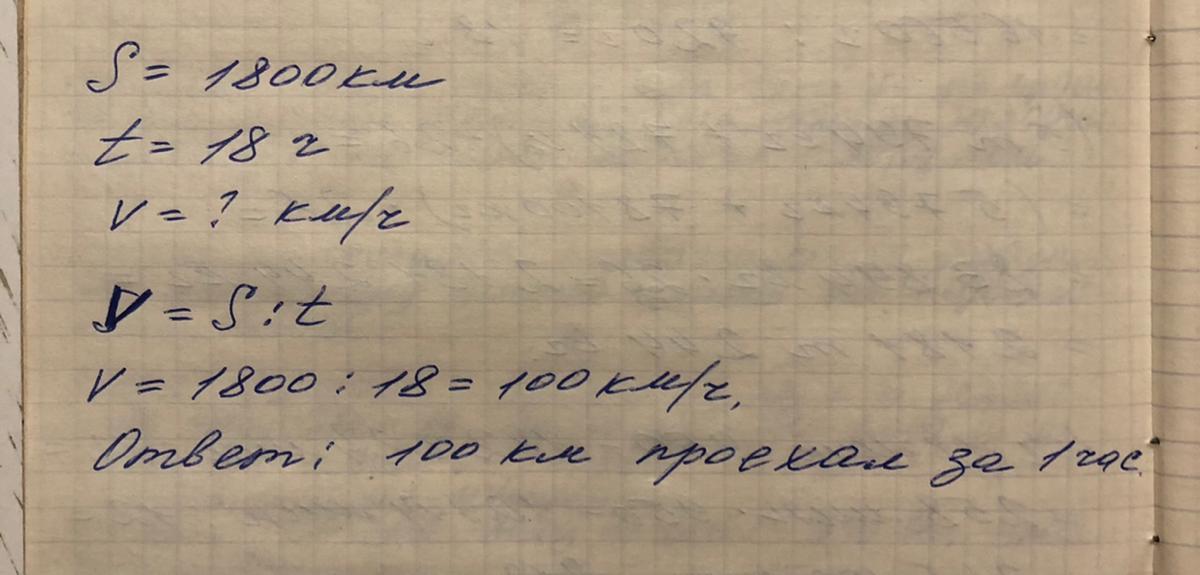 S = 1800 км
t = 18 ч
v = ? км/ч
V = S : t
v = 1800 : 18 = 100 км/ч.
Ответ: 100 км проехал за 1 час.